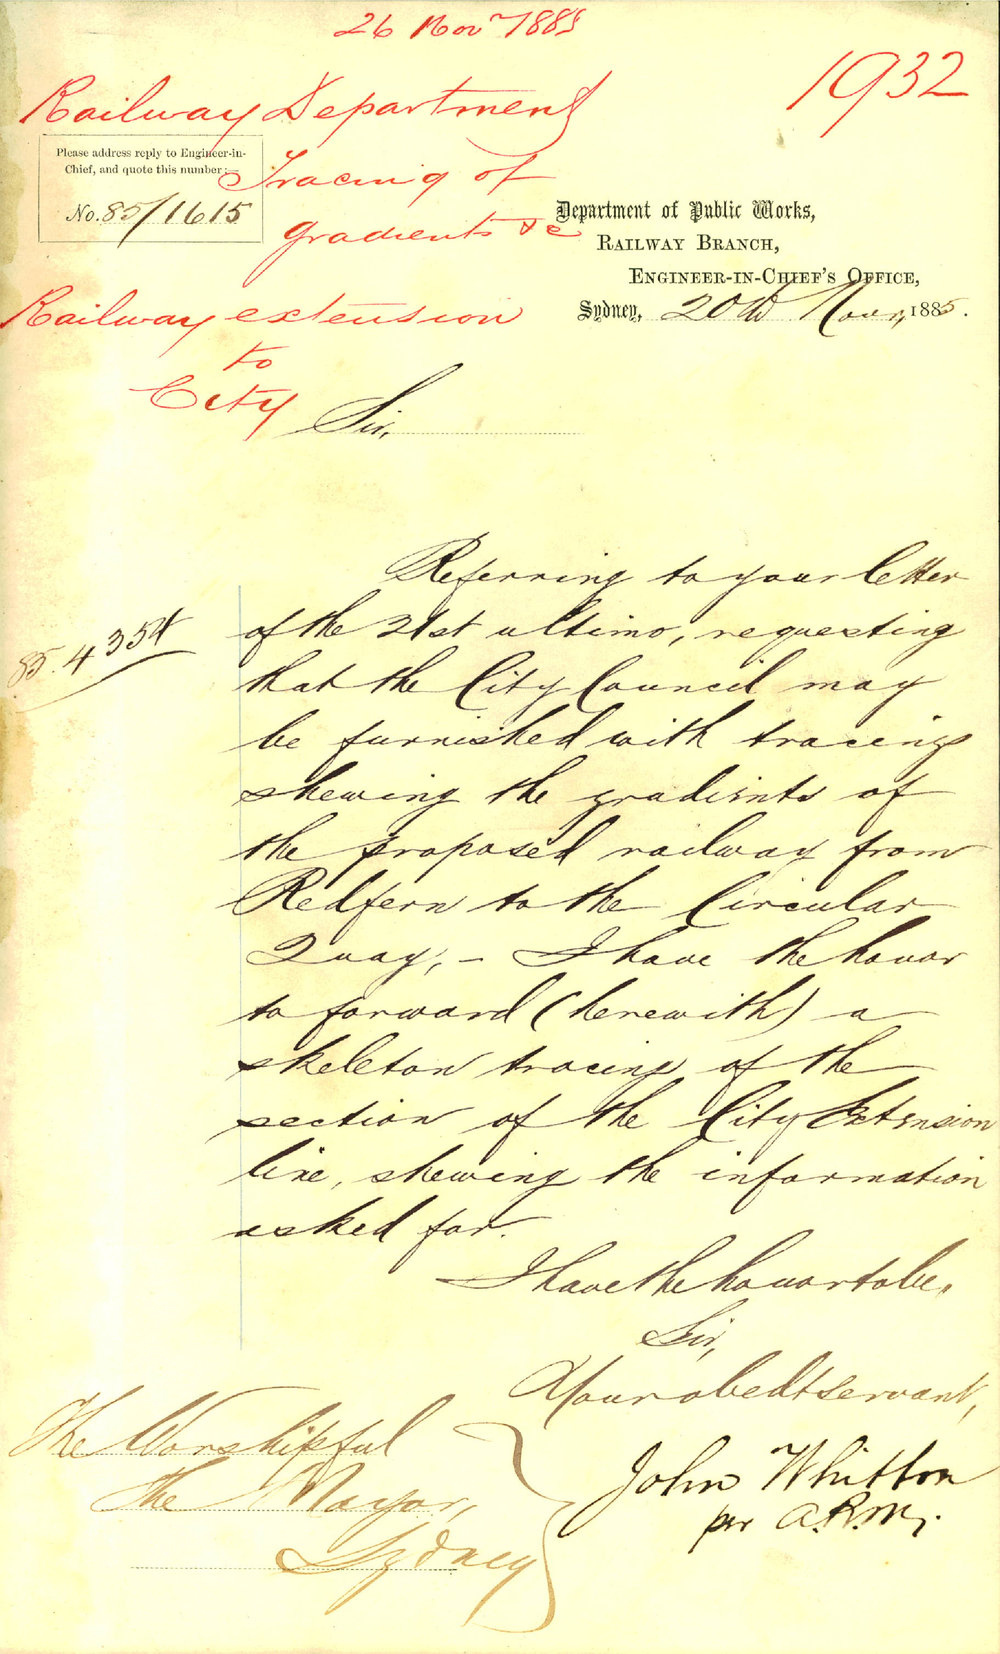 26 Novr 1885
1932
Railway Department
Please address reply to Engineer-in-
Chief, and quote this number:—
No. 85/1615
Tracing of
gradients &c
Department of Public Works,
Railway Branch,
Engineer-in-Chief's Office,
Sydney, 20th Novr, 1885.
Railway extension
to
City
Sir,
Referring to your letter
85.4354
of the 21st ultimo, requesting
that the City Council may
be furnished with tracing
shewing the gradients of
the proposed railway from
Redfern to the Circular
Quay, – I have the honor
to forward (herewith) a
skeleton tracing of the
section of the City Extension
line, shewing the information
asked for.
I have the honor to be,
Sir,
Your obedt servant,
John Whitton
per A.R.M.
The Worshipful
The Mayor,
Sydney